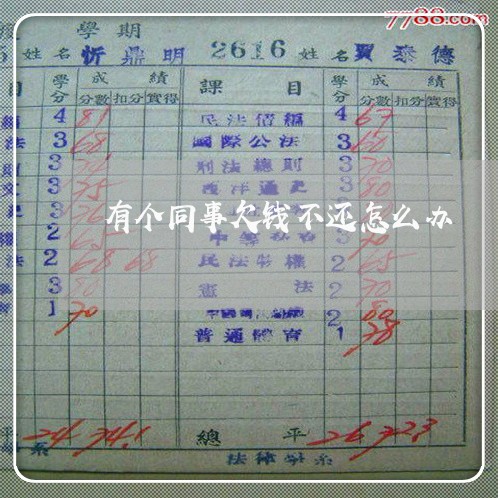 7788.com
學期
姓名 忻鼎明 2616 姓名 賈泰德
目 學分 成績 課目 學分 成績
分數 扣分 實得 分數 扣分 實得
4 81 民法債編 4 67
法 3 68 國際公法 3 60
則 3 刑法總則 3 70
3 75 西洋通史 3 80
3 76 3
有个同事欠钱不还怎么办
權 2 65 3 70
法 2 68 68 民法物權 2 65
3 80 憲法 2 70
1 70 2 80
普通體育 1 78
平 24 74.1 總平 26 72.3
系 法律學系